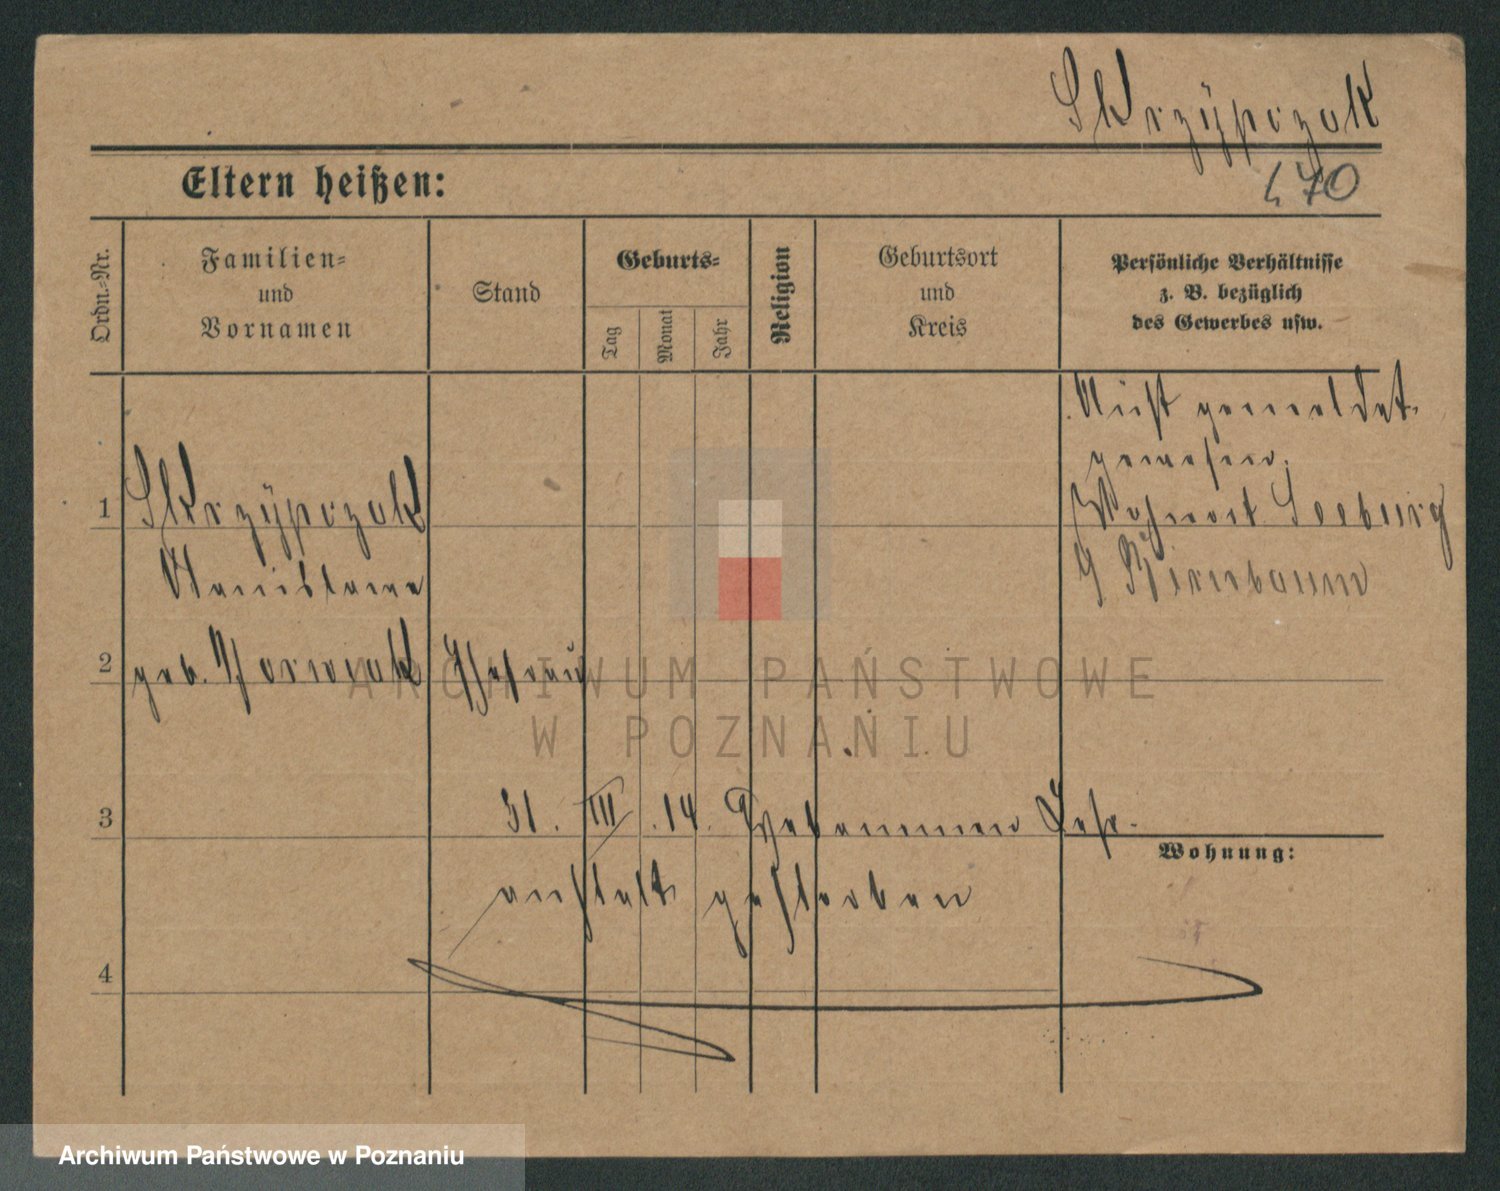 Skrzypczak
470
Eltern heißen:
Ordn.-Nr.
Familien-
und
Vornamen
Stand
Geburts-
Tag
Monat
Jahr
Religion
Geburtsort
und
Kreis
Persönliche Verhältnisse
z. B. bezüglich
des Gewerbes usw.
Nicht gemeldet
gewesen.
1 Skrzypczak
Wohnort Seeburg
Stanislawa
Birnbaum
2 geb. Ehefrau
ARCHIWUM PAŃSTWOWE
W POZNANIU
3 31. III. 14. Hebammen Lehr-
Wohnung:
anstalt gestorben
4
Archiwum Państwowe w Poznaniu